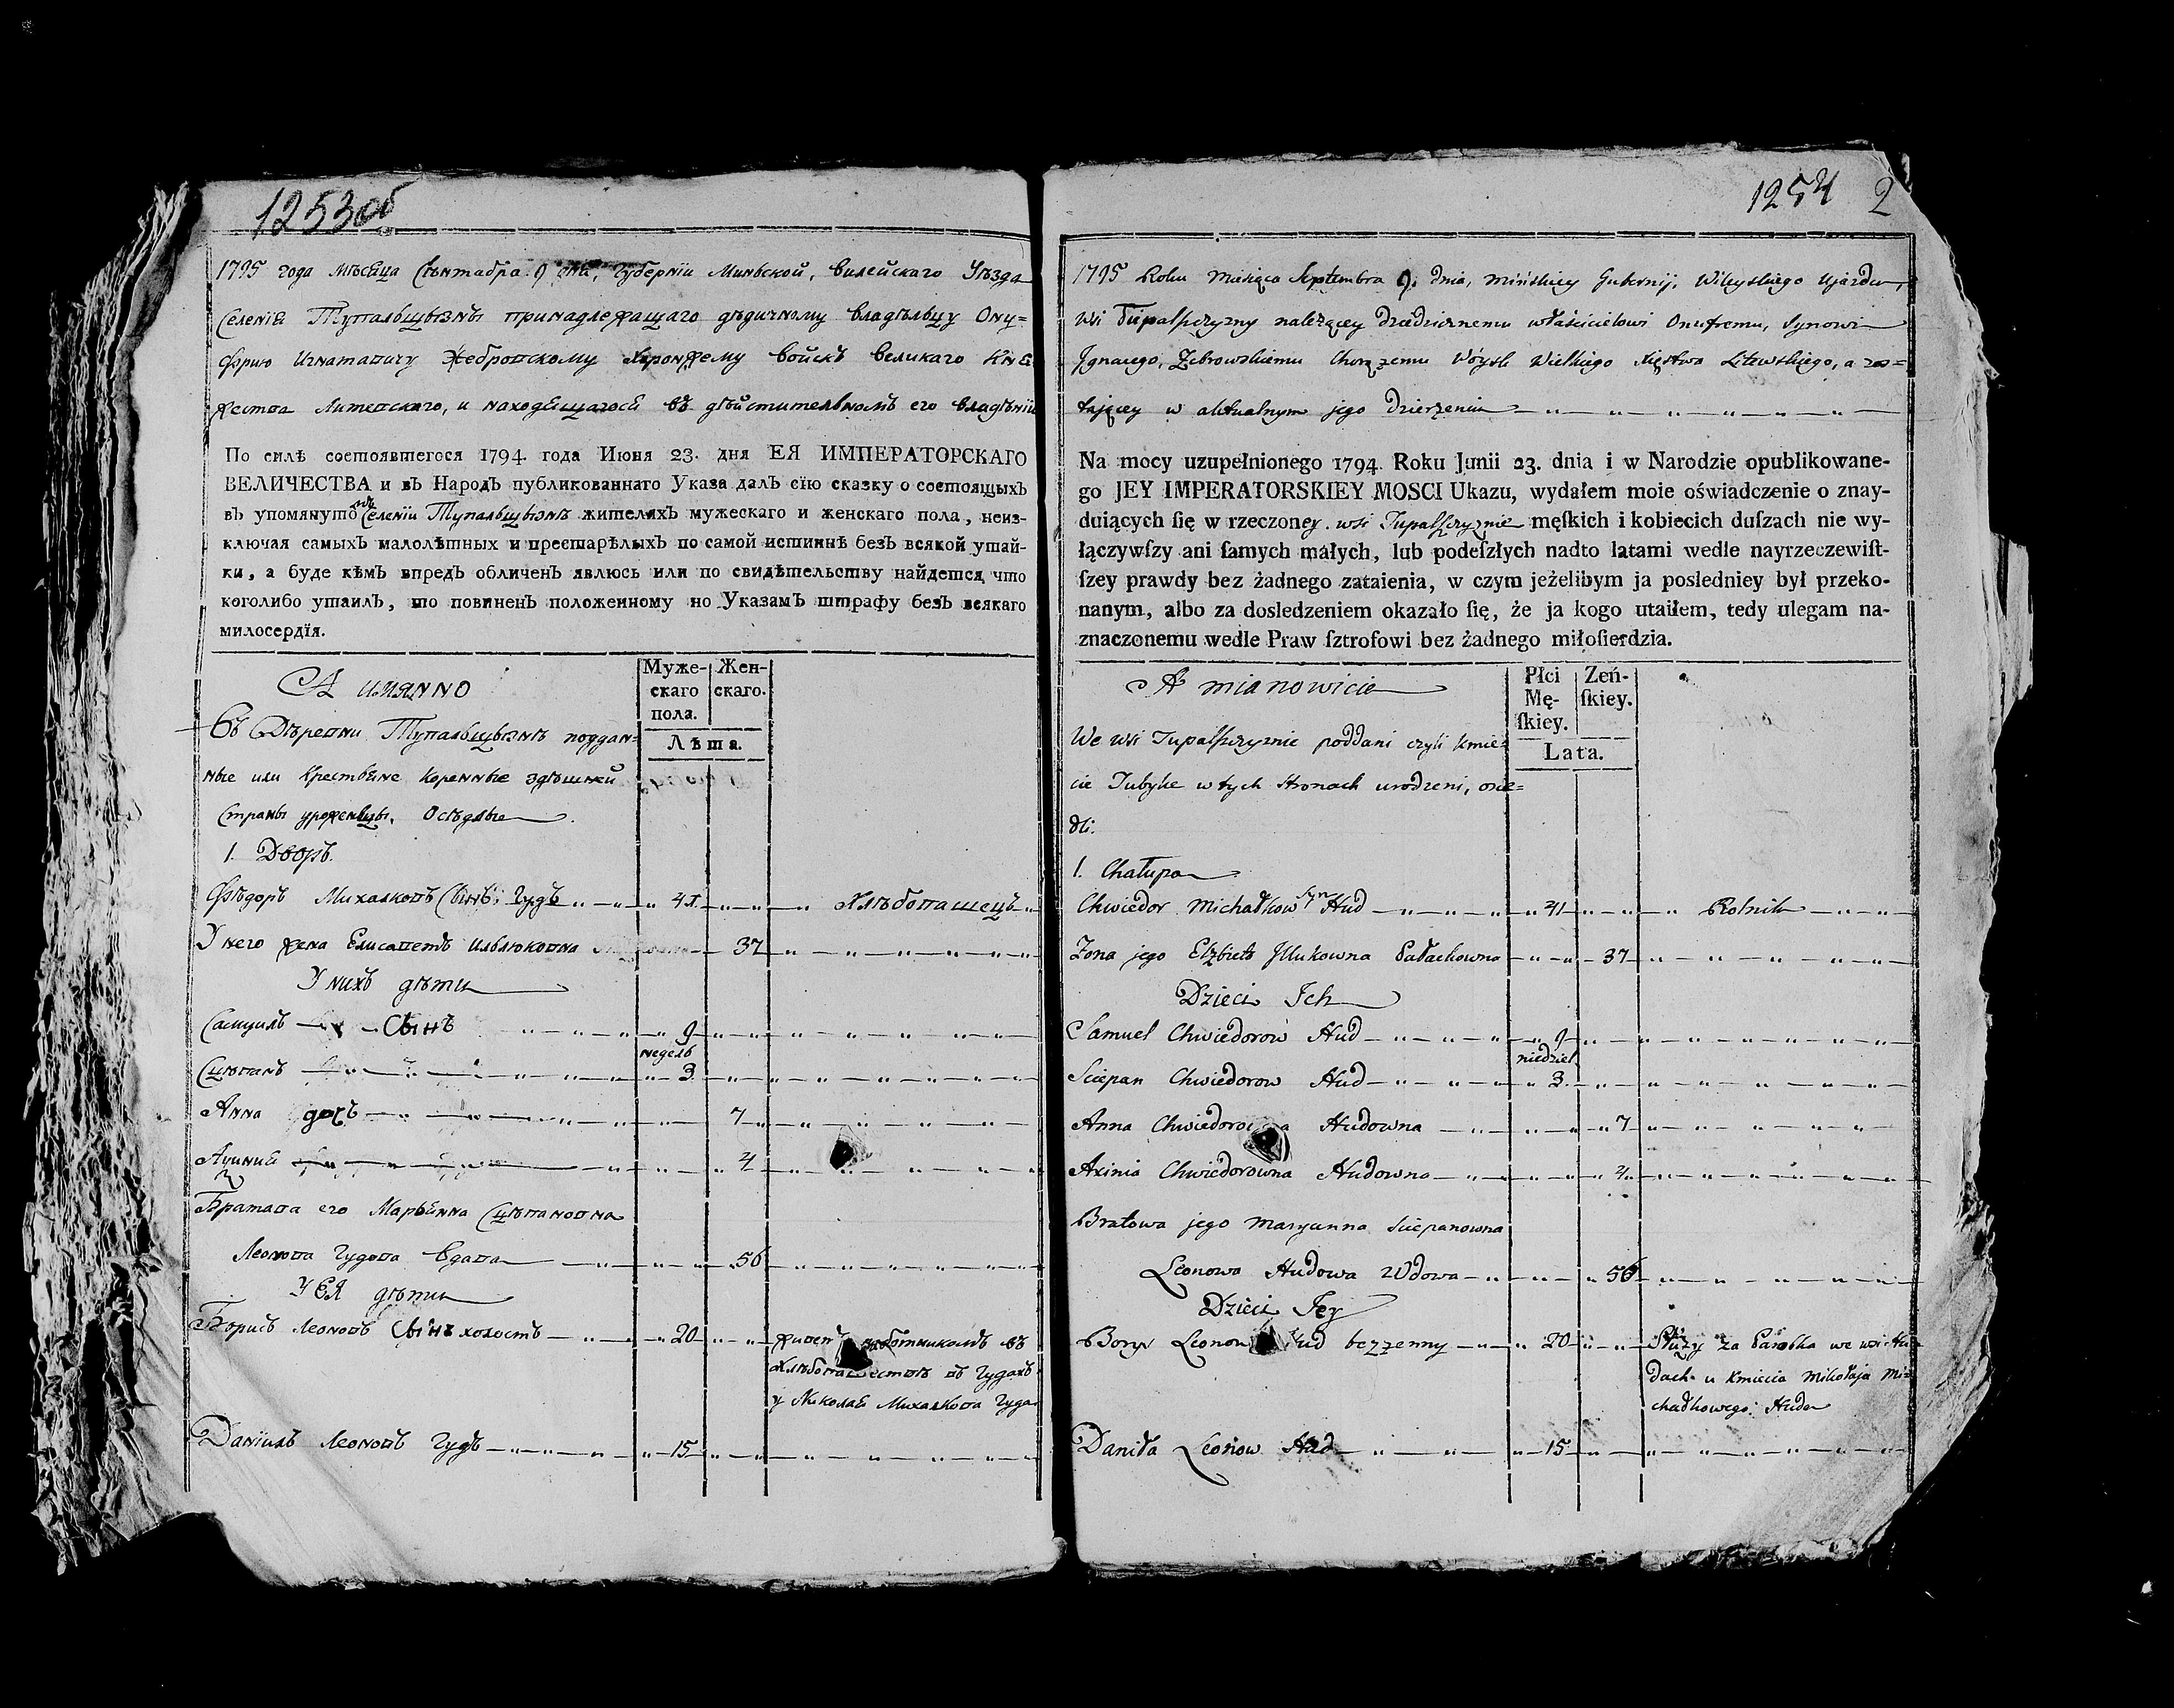 1253об
1795 года мѣсяца Сентабра 9 дня, Губернїи Минской, Вилейскаго Уѣзда
Селенія Тупальщызны принадлежащаго дѣдичному владѣльцу Ону=
фрию Игнатавичу Жебровскому Хоронжему войскъ великаго Кня
жества Литевскаго, и находящагося въ дѣйстительномъ его владѣніи
По силѣ состоявшегося 1794 года Июня 23. дня ЕЯ ИМПЕРАТОРСКАГО
ВЕЛИЧЕСТВА и въ Народъ публикованнаго Указа далъ сїю сказку о состоящыхъ
въ упомянутомъ Селеніи Тупальщызнѣ жителяхъ мужескаго и женскаго пола, неиз-
ключая самыхъ малолѣтных и престарѣлыхъ по самой истиннѣ безъ всякой утай-
ки, а буде кѣмъ впредъ обличенъ явлюсь или по свидѣтельству найдется что
коголибо утаилъ, то повиненъ положенному по Указамъ штрафу безъ всякаго
милосердїя.
А имянно
Муже-
скаго
пола.
Жен-
скаго.
Лѣта.
Въ Дѣревни Тупальщызнѣ поддан=
ные или Крестьяне Коренные здѣшней
Страны уроженцы. Осѣдлые
1. Дворъ.
Фѣдоръ Михалковъ Сынъ Гудъ 41 Хлѣбопашецъ
У него жена Елисаветъ Ильлюковна 37
У нихъ дѣти
Самуилъ Сынъ 9
недель
Сцѣпанъ 3
Анна дочь 7
Ауиния 4
Братава его Марьянна Сцѣпановна
Леонова Гудова Вдова 56
У Ея дѣти
Борисъ Леоновъ Сынъ холостъ 20 живетъ работникомъ въ
Хлѣбопашествѣ въ Гудахъ
у Николая Михалкова Гуда
Данїилъ Леоновъ Гудъ 15
1254 2
1795 Roku Miesiąca Septembra 9. dnia, Mińskiey Gubernij, Wileyskiego Ujazdu,
Wsi Tupalszczyzny należącey dziedzicznemu właścicielowi Onufremu, Synowi
Ignacego, Żebrowskiemu Chorążemu Wóysk Wielkiego Xięstwa Litewskiego, a zos=
tającey w aktualnym jego dzierżeniu
Na mocy uzupełnionego 1794. Roku Junii 23. dnia i w Narodzie opublikowane-
go JEY IMPERATORSKIEY MOSCI Ukazu, wydałem moie oświadczenie o znay-
duiących ſię w rzeczoney wsi Tupalszczyznie męſkich i kobiecich duſzach nie wy-
łączywſzy ani ſamych małych, lub podeſzłych nadto latami wedle nayrzeczewiſt-
ſzey prawdy bez żadnego zataienia, w czym jeżelibym ja posledniey był przeko-
nanym, albo za dosledzeniem okazało ſię, że ja kogo utaiłem, tedy ulegam na-
znaczonemu wedle Praw ſztrofowi bez żadnego miłoſierdzia.
A mianowicie
Płci
Mę-
ſkiey.
Zeń-
ſkiey.
Lata.
We wsi Tupalszczyznie poddani czyli kmie=
cie Tubylce w tych Stronach urodzeni, osie=
dli.
1. Chałupa
Chwiedor Michałkow Syn Hud 41 Rolnik
Żona jego Elżbieta Illukowna Pałachowna 37
Dzieci Ich
Samuel Chwiedorow Hud 9
niedziel
Sciepan Chwiedorow Hud 3.
Anna Chwiedorowna Hudowna 7
Axinia Chwiedorowna Hudowna 4
Bratowa jego Maryanna Sciepanowna
Leonowa Hudowa Wdowa 56
Dzieci Jey
Borys Leonow Hud bezżenny 20 Służy za Parobka we wsi Hu=
dach u Kmiecia Mikołaja Mi=
chałkowego Huda
Daniła Leonow Hud 15